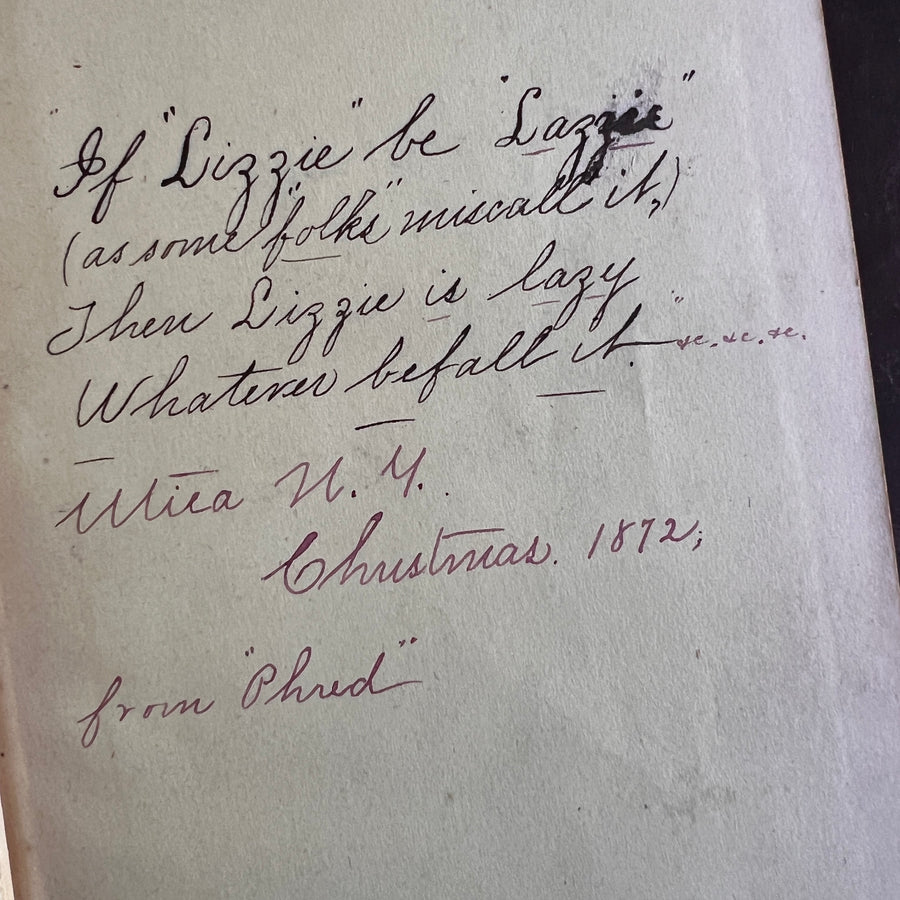 "If "Lizzie" be "Lazzie"
(as some "folks" miscall it,)
Then Lizzie is lazy
Whatever befall it. " &c. &c. &c.
Utica N. Y.
Christmas. 1872;
from "Phred"